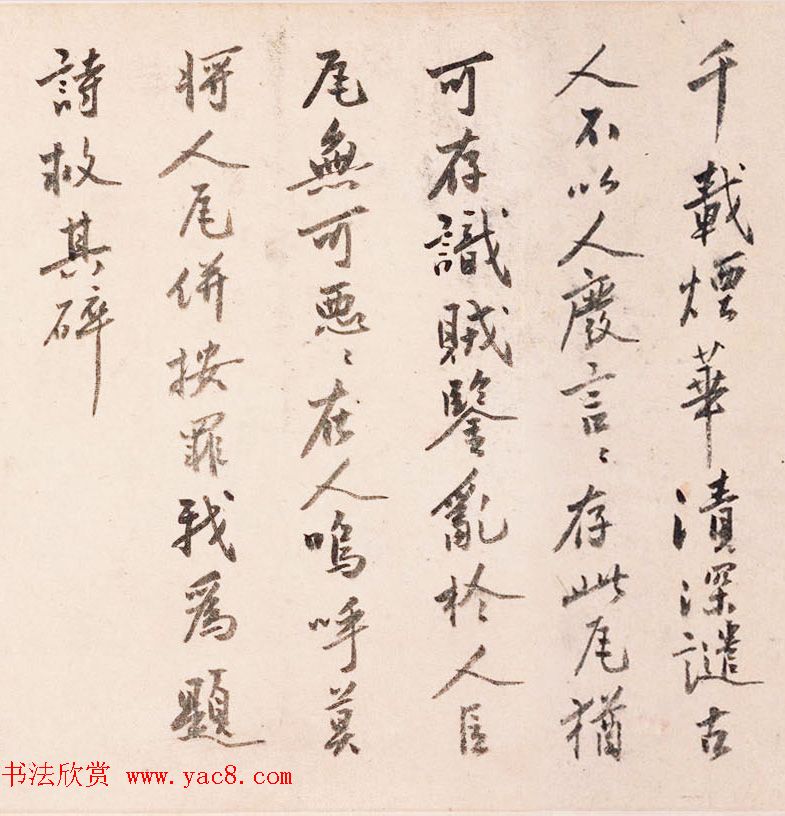 千載煙華漬深譴古
人不以人廢言〻存此瓦猶
可存識賊鑒亂於人臣
瓦無可惡〻在人嗚呼莫
將人瓦併按罪我為題
詩救其碎
书法欣赏 www.yac8.com